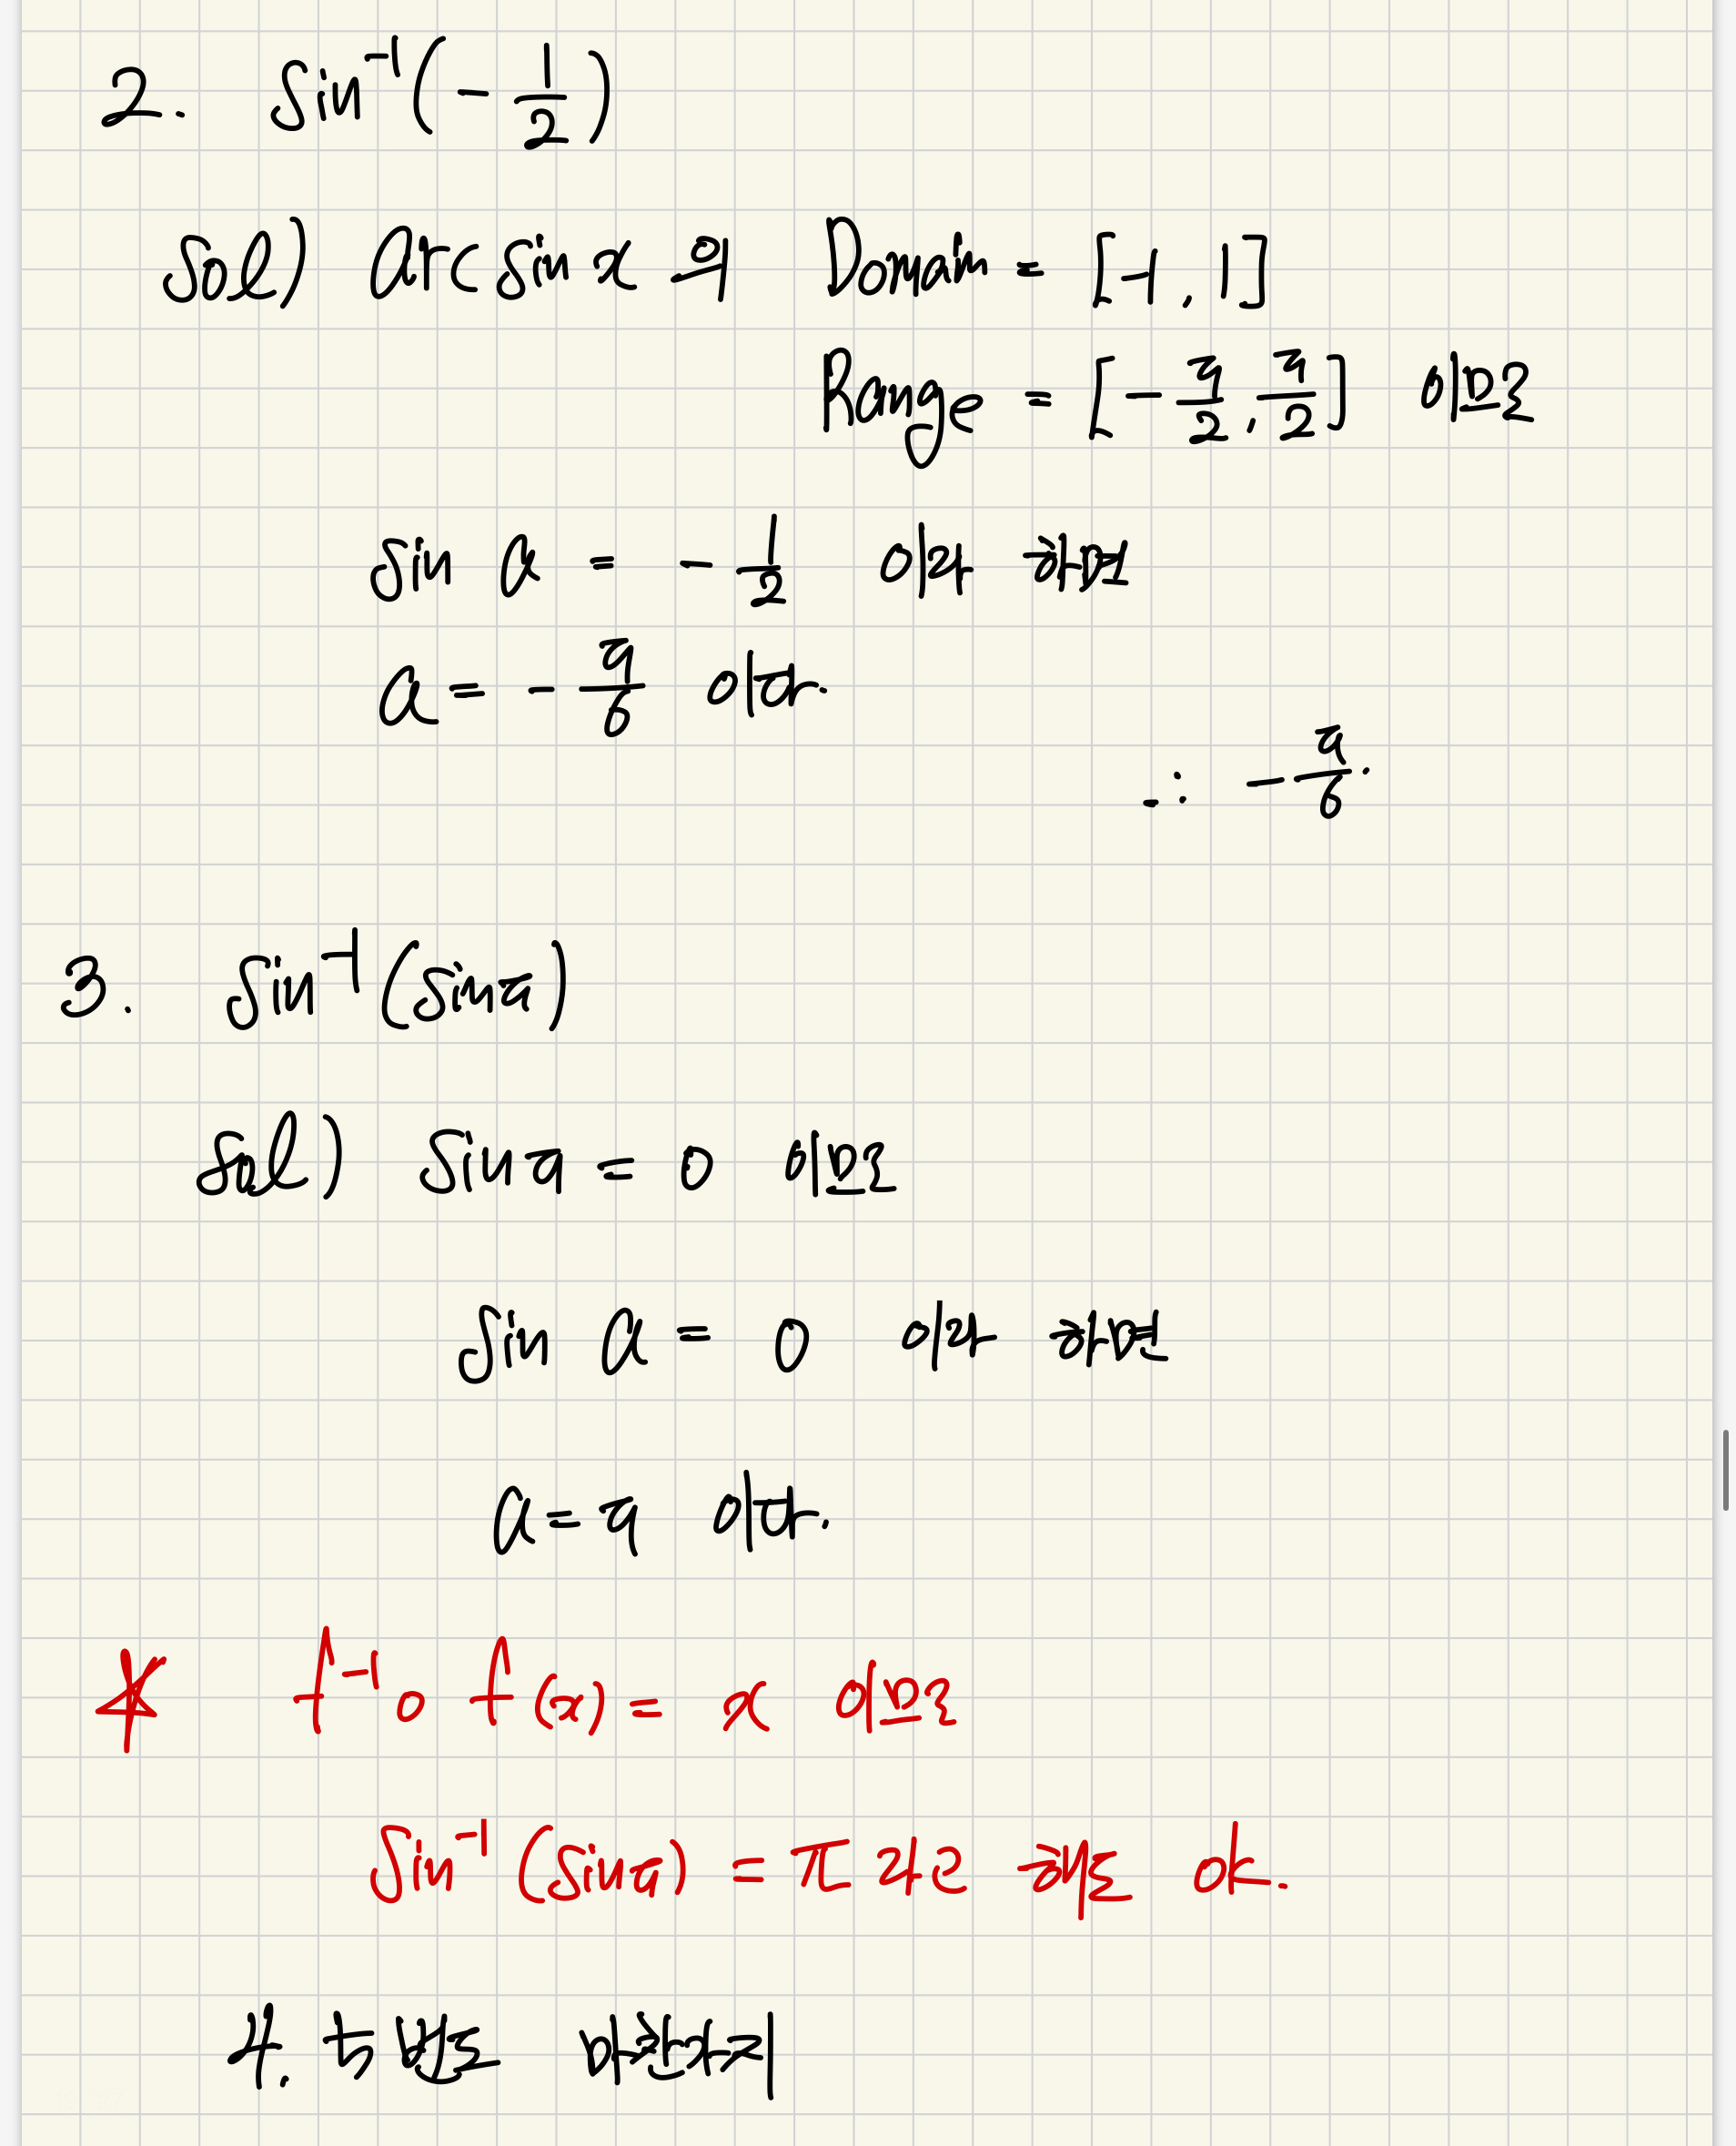 2. sin⁻¹(-1/2)
sol) arcsin x 의 Domain = [-1, 1]
Range = [-π/2, π/2] 이므로
sin a = -1/2 이라 하면
a = -π/6 이다.
∴ -π/6.
3. sin⁻¹(sinπ)
sol) sinπ = 0 이므로
sin a = 0 이라 하면
a = π 이다.
* f⁻¹ o f(x) = x 이므로
sin⁻¹(sinπ) = π 라고 해도 ok.
4. 5번도 마찬가지